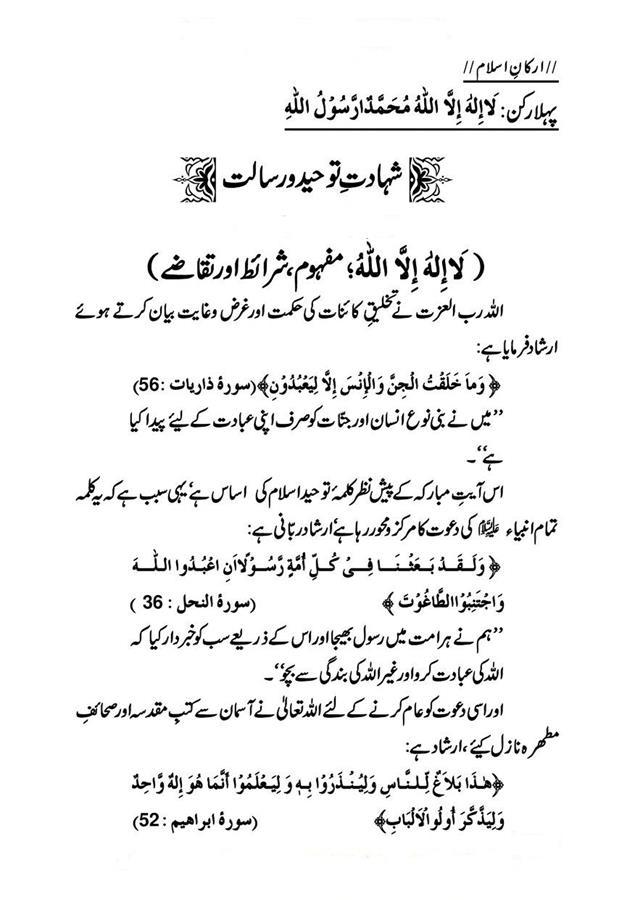 //ارکانِ اسلام//
پہلا رکن: لَا إِلٰهَ إِلَّا اللّٰهُ مُحَمَّدٌ ارَّسُوْلُ اللّٰهِ
شہادتِ توحید و رسالت
(لَا إِلٰهَ إِلَّا اللّٰهُ؛ مفہوم، شرائط اور تقاضے)
اللہ رب العزت نے تخلیقِ کائنات کی حکمت اور غرض وغایت بیان کرتے ہوئے
ارشاد فرمایا ہے:
﴿وَمَا خَلَقْتُ الْجِنَّ وَالْإِنْسَ إِلَّا لِيَعْبُدُوْنِ﴾(سورۂ ذاریات :56)
’’میں نے بنی نوع انسان اور جنّات کو صرف اپنی عبادت کے لیئے پیدا کیا
ہے‘‘۔
اس آیتِ مبارکہ کے پیش نظر کلمۂ توحید اسلام کی اساس ہے‘ یہی سبب ہے کہ یہ کلمہ
تمام انبیاء علیہم السلام کی دعوت کا مرکز و محور رہا ہے‘ ارشادِ ربّانی ہے:
﴿وَلَقَدْ بَعَثْنَا فِيْ كُلِّ أُمَّةٍ رَّسُوْلًا اَنِ اعْبُدُوا اللّٰهَ
وَاجْتَنِبُوْا الطَّاغُوْتَ﴾ (سورۃ النحل : 36 )
’’ہم نے ہر امت میں رسول بھیجا اور اس کے ذریعے سب کو خبردار کیا کہ
اللہ کی عبادت کرو اور غیر اللہ کی بندگی سے بچو‘‘۔
اور اسی دعوت کو عام کرنے کے لئے اللہ تعالیٰ نے آسمان سے کتبِ مقدسہ اور صحائفِ
مطھرہ نازل کیئے، ارشاد ہے:
﴿هٰذَا بَلَاغٌ لِّلنَّاسِ وَلِيُنْذَرُوْا بِهٖ وَ لِيَعْلَمُوْا أَنَّمَا هُوَ إِلٰهٌ وَّاحِدٌ
وَلِيَذَّكَّرَ أُولُوا الْاَلْبَابِ﴾ (سورۂ ابراھیم :52)